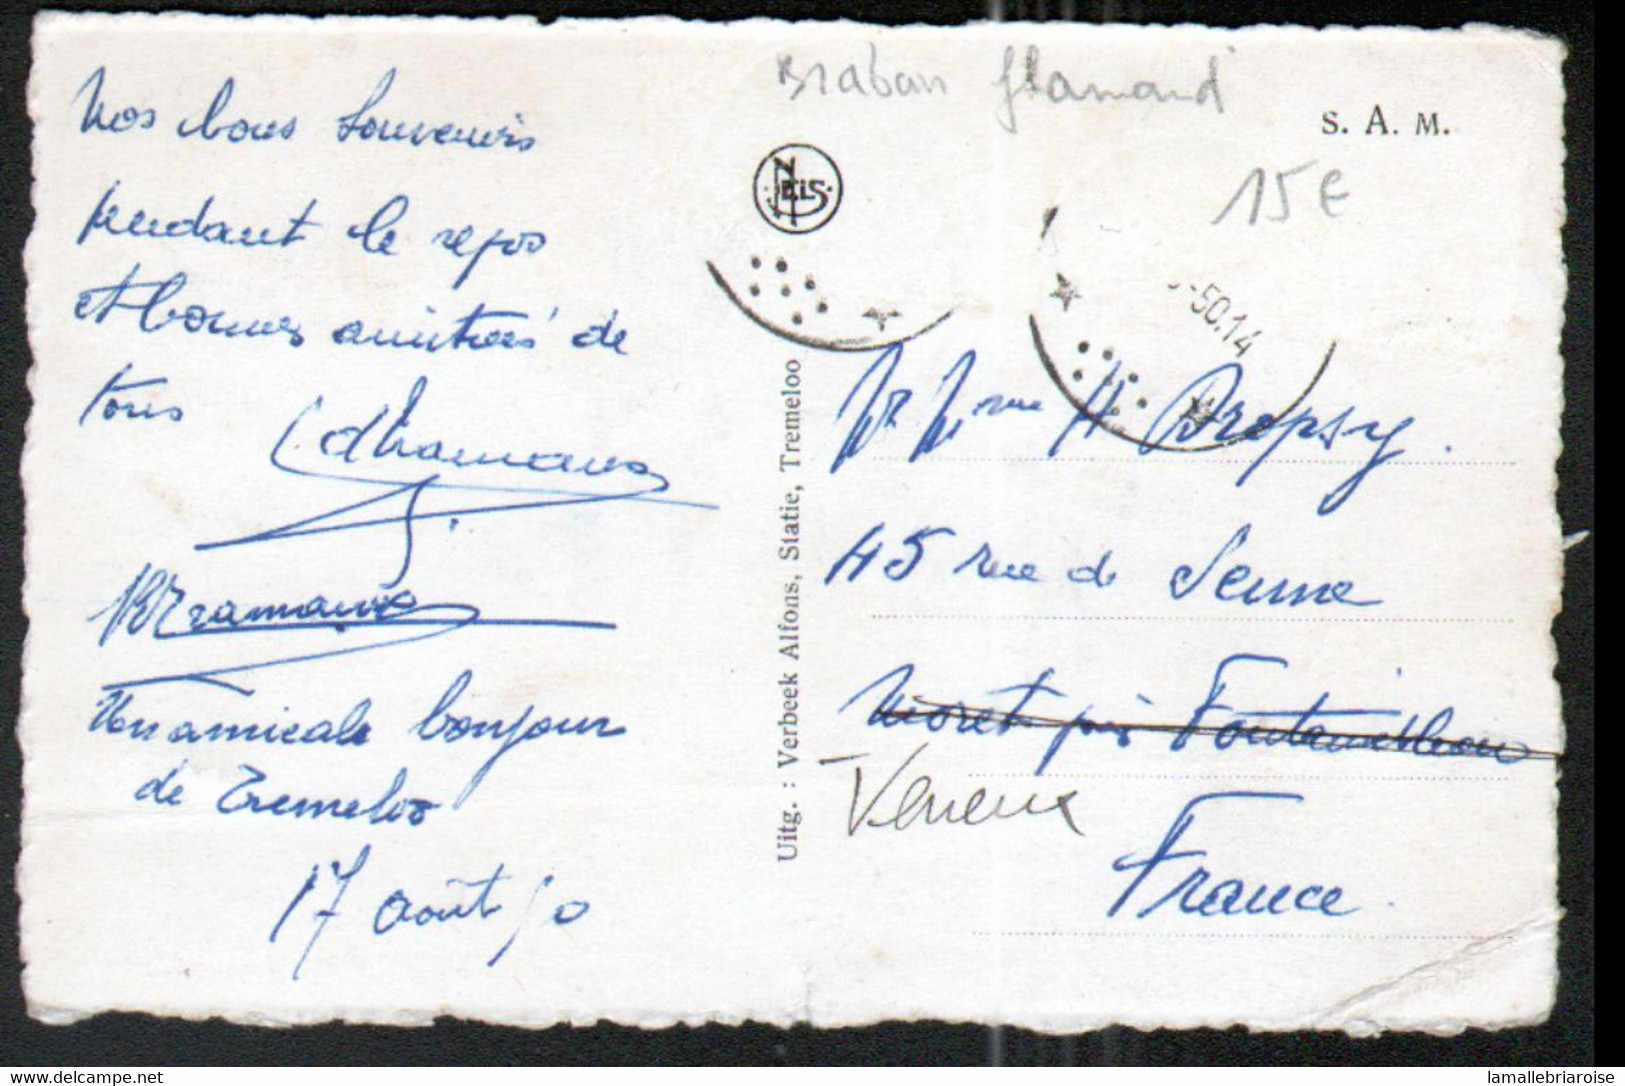 Nos bons souvenirs
pendant le repos
et bonnes amitiés de
tous
Un amicale bonjour
de Tremeloo
17 août 50
Uitg. : Verbeek Alfons, Statie, Tremeloo
Braban flamand
S. A. M.
15€
NELS
-50.14
Mr Mme H Dropsy.
45 rue de Seine
Moret près Fontainebleau
Veneux
France.
www.delcampe.net
lamallebriaroise